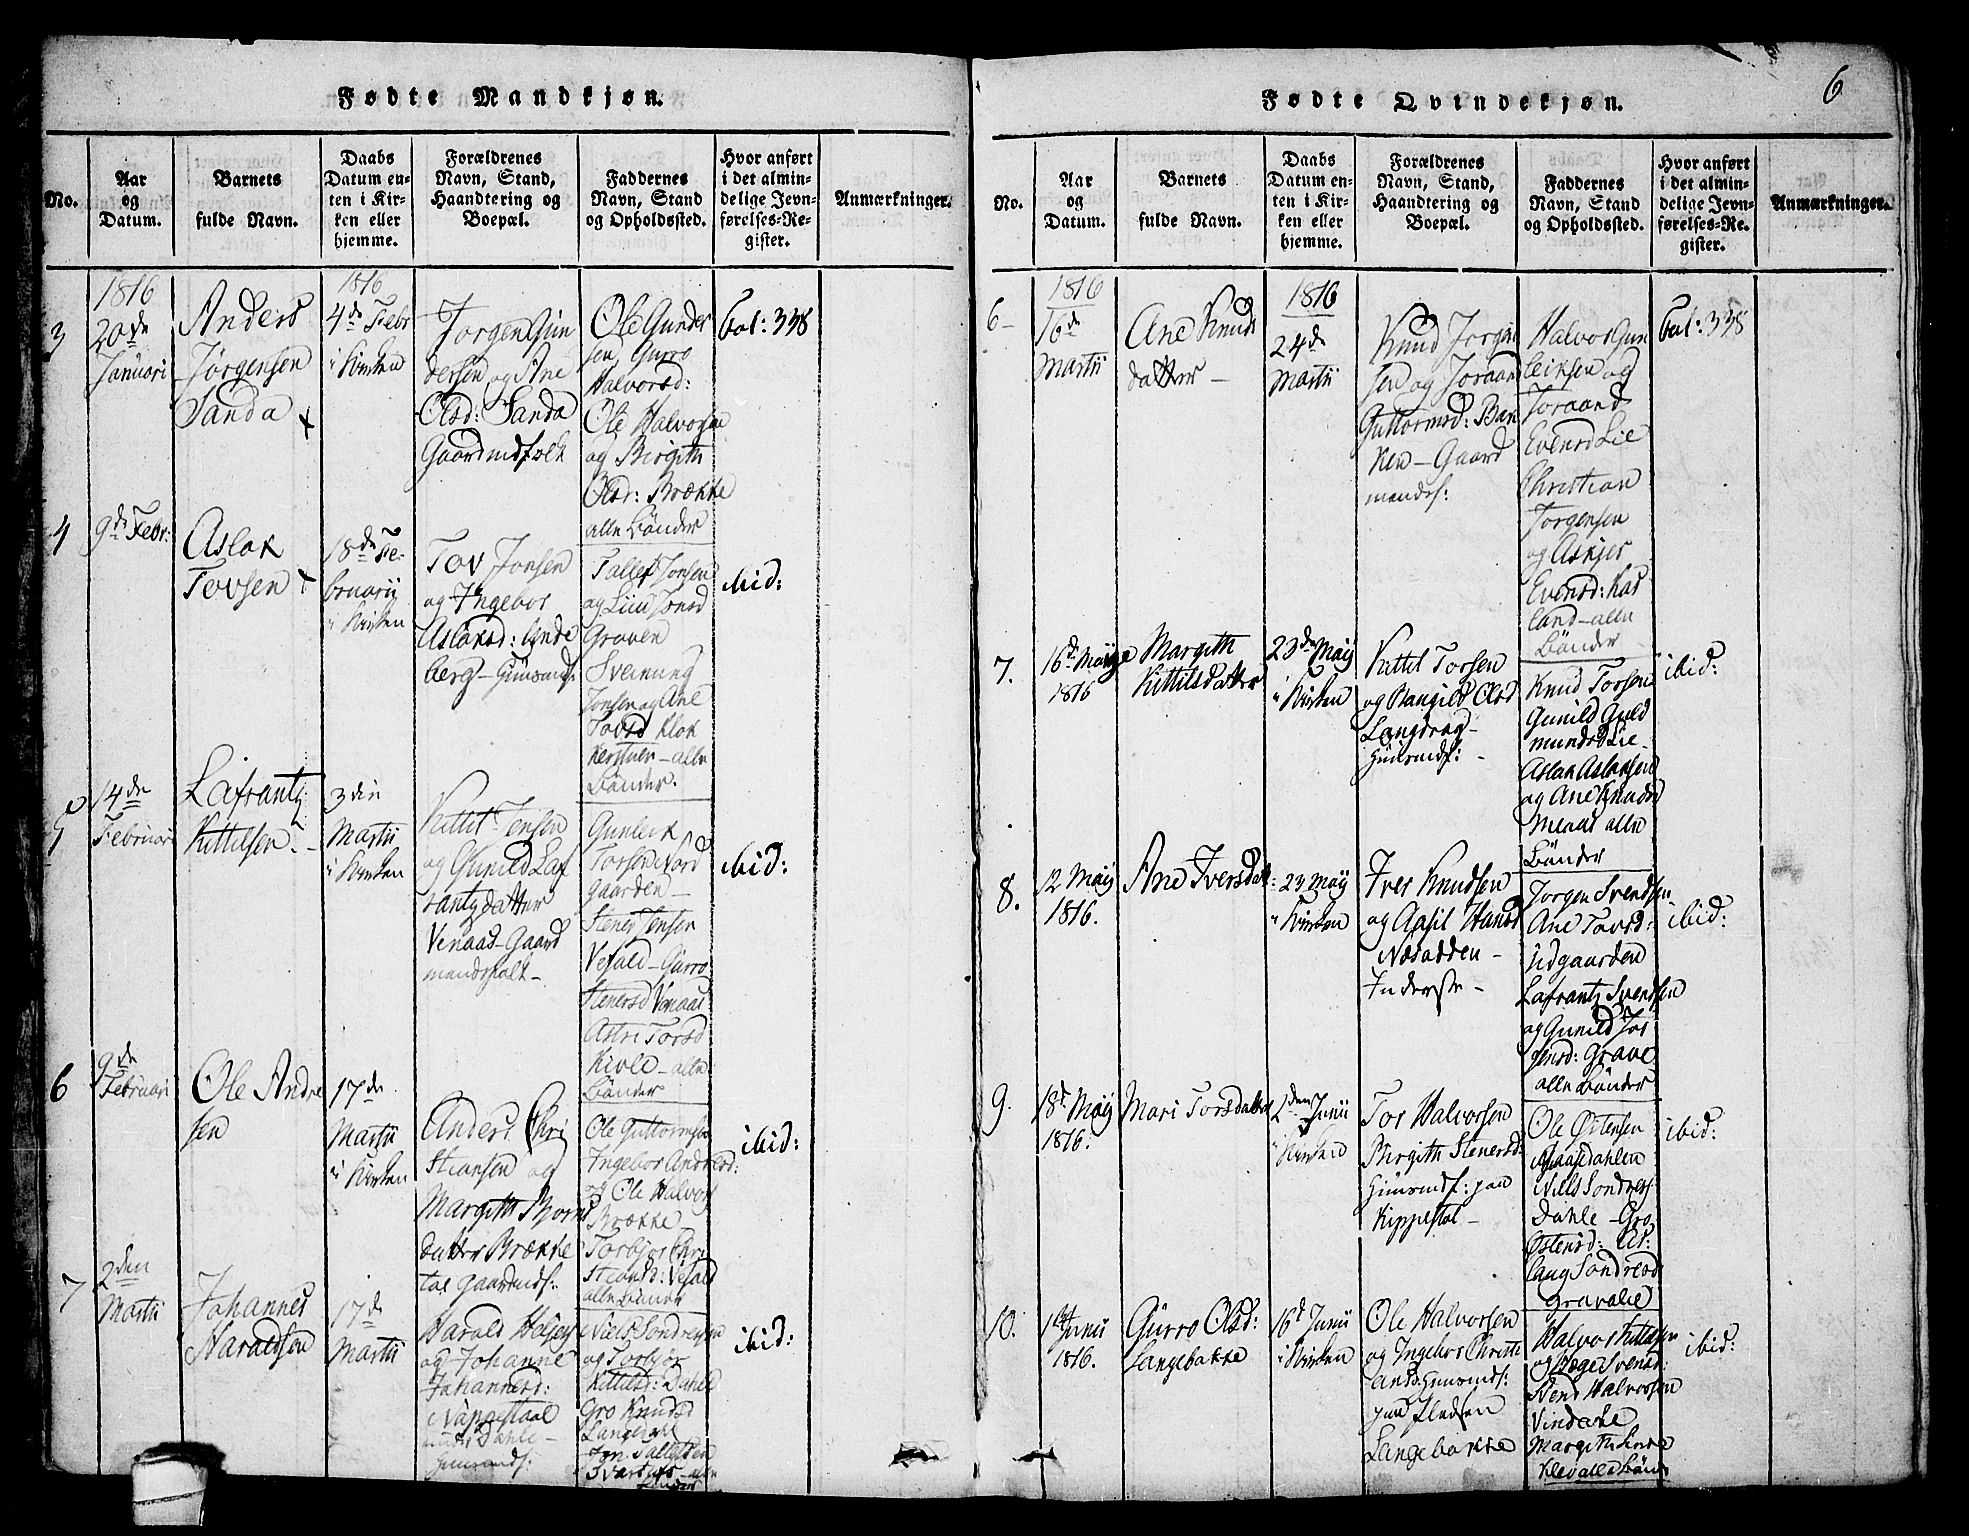 Fødte Mandkjøn.
No.
Aar
og
Datum.
Barnets
fulde Navn.
Daabs
Datum en-
ten i Kir-
ken eller
hjemme.
Forældrenes
Navn, Stand,
Haandtering og
Boepæl.
Faddernes
Navn, Stand
og Opholdssted.
Hvor anført
i det almin-
delige Jevn-
førelses-Re-
gister.
Anmærkninger.
3
1816
20de
Januari
Anders
Jørgensen
Sanda
1816
4de Febr
i Kirken
Jørgen Gun
dersen og Ane
Olsd: Sanda
Gaardmdfolk
Ole Gunder
sen, Gurro
Halvorsd:
Ole Halvorsen
og Birgith
Olsd: Brække
alle Bønder
Fol: 338
4
9de Febr:
Aslak
Tovsen
18de Fe-
bruarij
i Kirken
Tov Jonsen
og Ingebor
Aslaksd: Linde
berg - Huusmdf:
Tallef Jonsen
og Liu Jonsd
Graven
Svenung
Jonsen og Ane
Tovsd Klok
kerstuen - alle
Bønder.
ibid:
5
14de
Februari
Lafrantz
Kittilsen
3die
Martii
i Kirken
Kittil Jensen
og Gunild Laf
rantzdatter
Venaas - Gaard
mandsfolk -
Gunleik
Torsen Nord
gaarden -
Stener Jensen
Vefald - Gurro
Stenersd Venaas
Astri Torsd
Kivle - alle
Bønder
ibid:
6
9de
Februari
Ole Andre
sen
17de
Martii
i Kirken
Anders Chri
stiansen og
Margith Bjørns
datter Brække
tal Gaardmdf:
Ole Guttormsen
Ingebor Andersd:
og Ole Halvors
Brække
Torbjør Chri
stiansd: Vefald
alle Bønder
ibid:
7
2den
Martii
Johannes
Haraldsen
17de
Martii
Harald Heljes
og Johanne
Johannesd:
Nappestaal
Dahle -
Huusmdf:
Niels Sondresen
og Torbjør
Kittilsd: Dahle
Gro Knudsd
Langedahl
Jon Tallefsen
ibid:
Fødte Qvindekjøn.
6
No.
Aar
og
Datum.
Barnets
fulde Navn.
Daabs
Datum en-
ten i Kir-
ken eller
hjemme.
Forældrenes
Navn, Stand,
Haandtering og
Boepæl.
Faddernes
Navn, Stand
og Opholdssted.
Hvor anført
i det almin-
delige Jevn-
førelses-Re-
gister.
Anmærkninger.
6-
1816
16de
Martii
Ane Knuds
datter -
1816
24de
Martii
Knud Jørgen
sen og Joraand
Guttormsd: Bak
ken - Gaard
mandsf:
Halvor Gun
leiksen og
Joraand
Evensd Lie
Christian
Jørgensen
og Askjer
Evensd: Has
land - alle
Bønder
Fol: 338
7.
16de Maij
1816
Margith
Kittilsdatter
23de Maij
i Kirken
Kittil Torsen
og Rangild Olsd
Langdrag -
Huusmdf: -
Knud Torsen
Gunild Guld
mundsd Lie -
Aslak Aslaksen
og Ane Knudsd
Meaas alle
Bønder
ibid:
8.
12 Maij
1816.
Ane Iversdatt:
23 Maij
i Kirken
Iver Knudsen
og Aasil Hansd
Næsødden -
Inderste -
Jørgen Svendsen
Ane Tovsd:
Udgaarden
Lafrantz Svendsen
og Gunild Jør
gensd: Grave
alle Bønder
ibid:
9.
18de Maij
1816.
Mari Torsdatter
2den Junii
i Kirken
Tor Halvorsen
Birgith Stenersd:
Huusmdf: paa
Kippestøl -
Ole Østensen
Dahlen
Niels Sondres
Dahle - Gro
Østensd: As:
laug Sondresd
Gravalie
ibid:
10.
1ste Junii
1816.
Gurro Olsd:
Langebakke
16d Junii
i Kirken
Ole Halvorsen
og Ingebor Christi
ansd Huusmdf:
paa
Langebakke
Halvor Kittilsen
og Hæge Svensd:
Svend Halvorsen
Vindlaus
Margith
Klev alle Bønd
ibid: